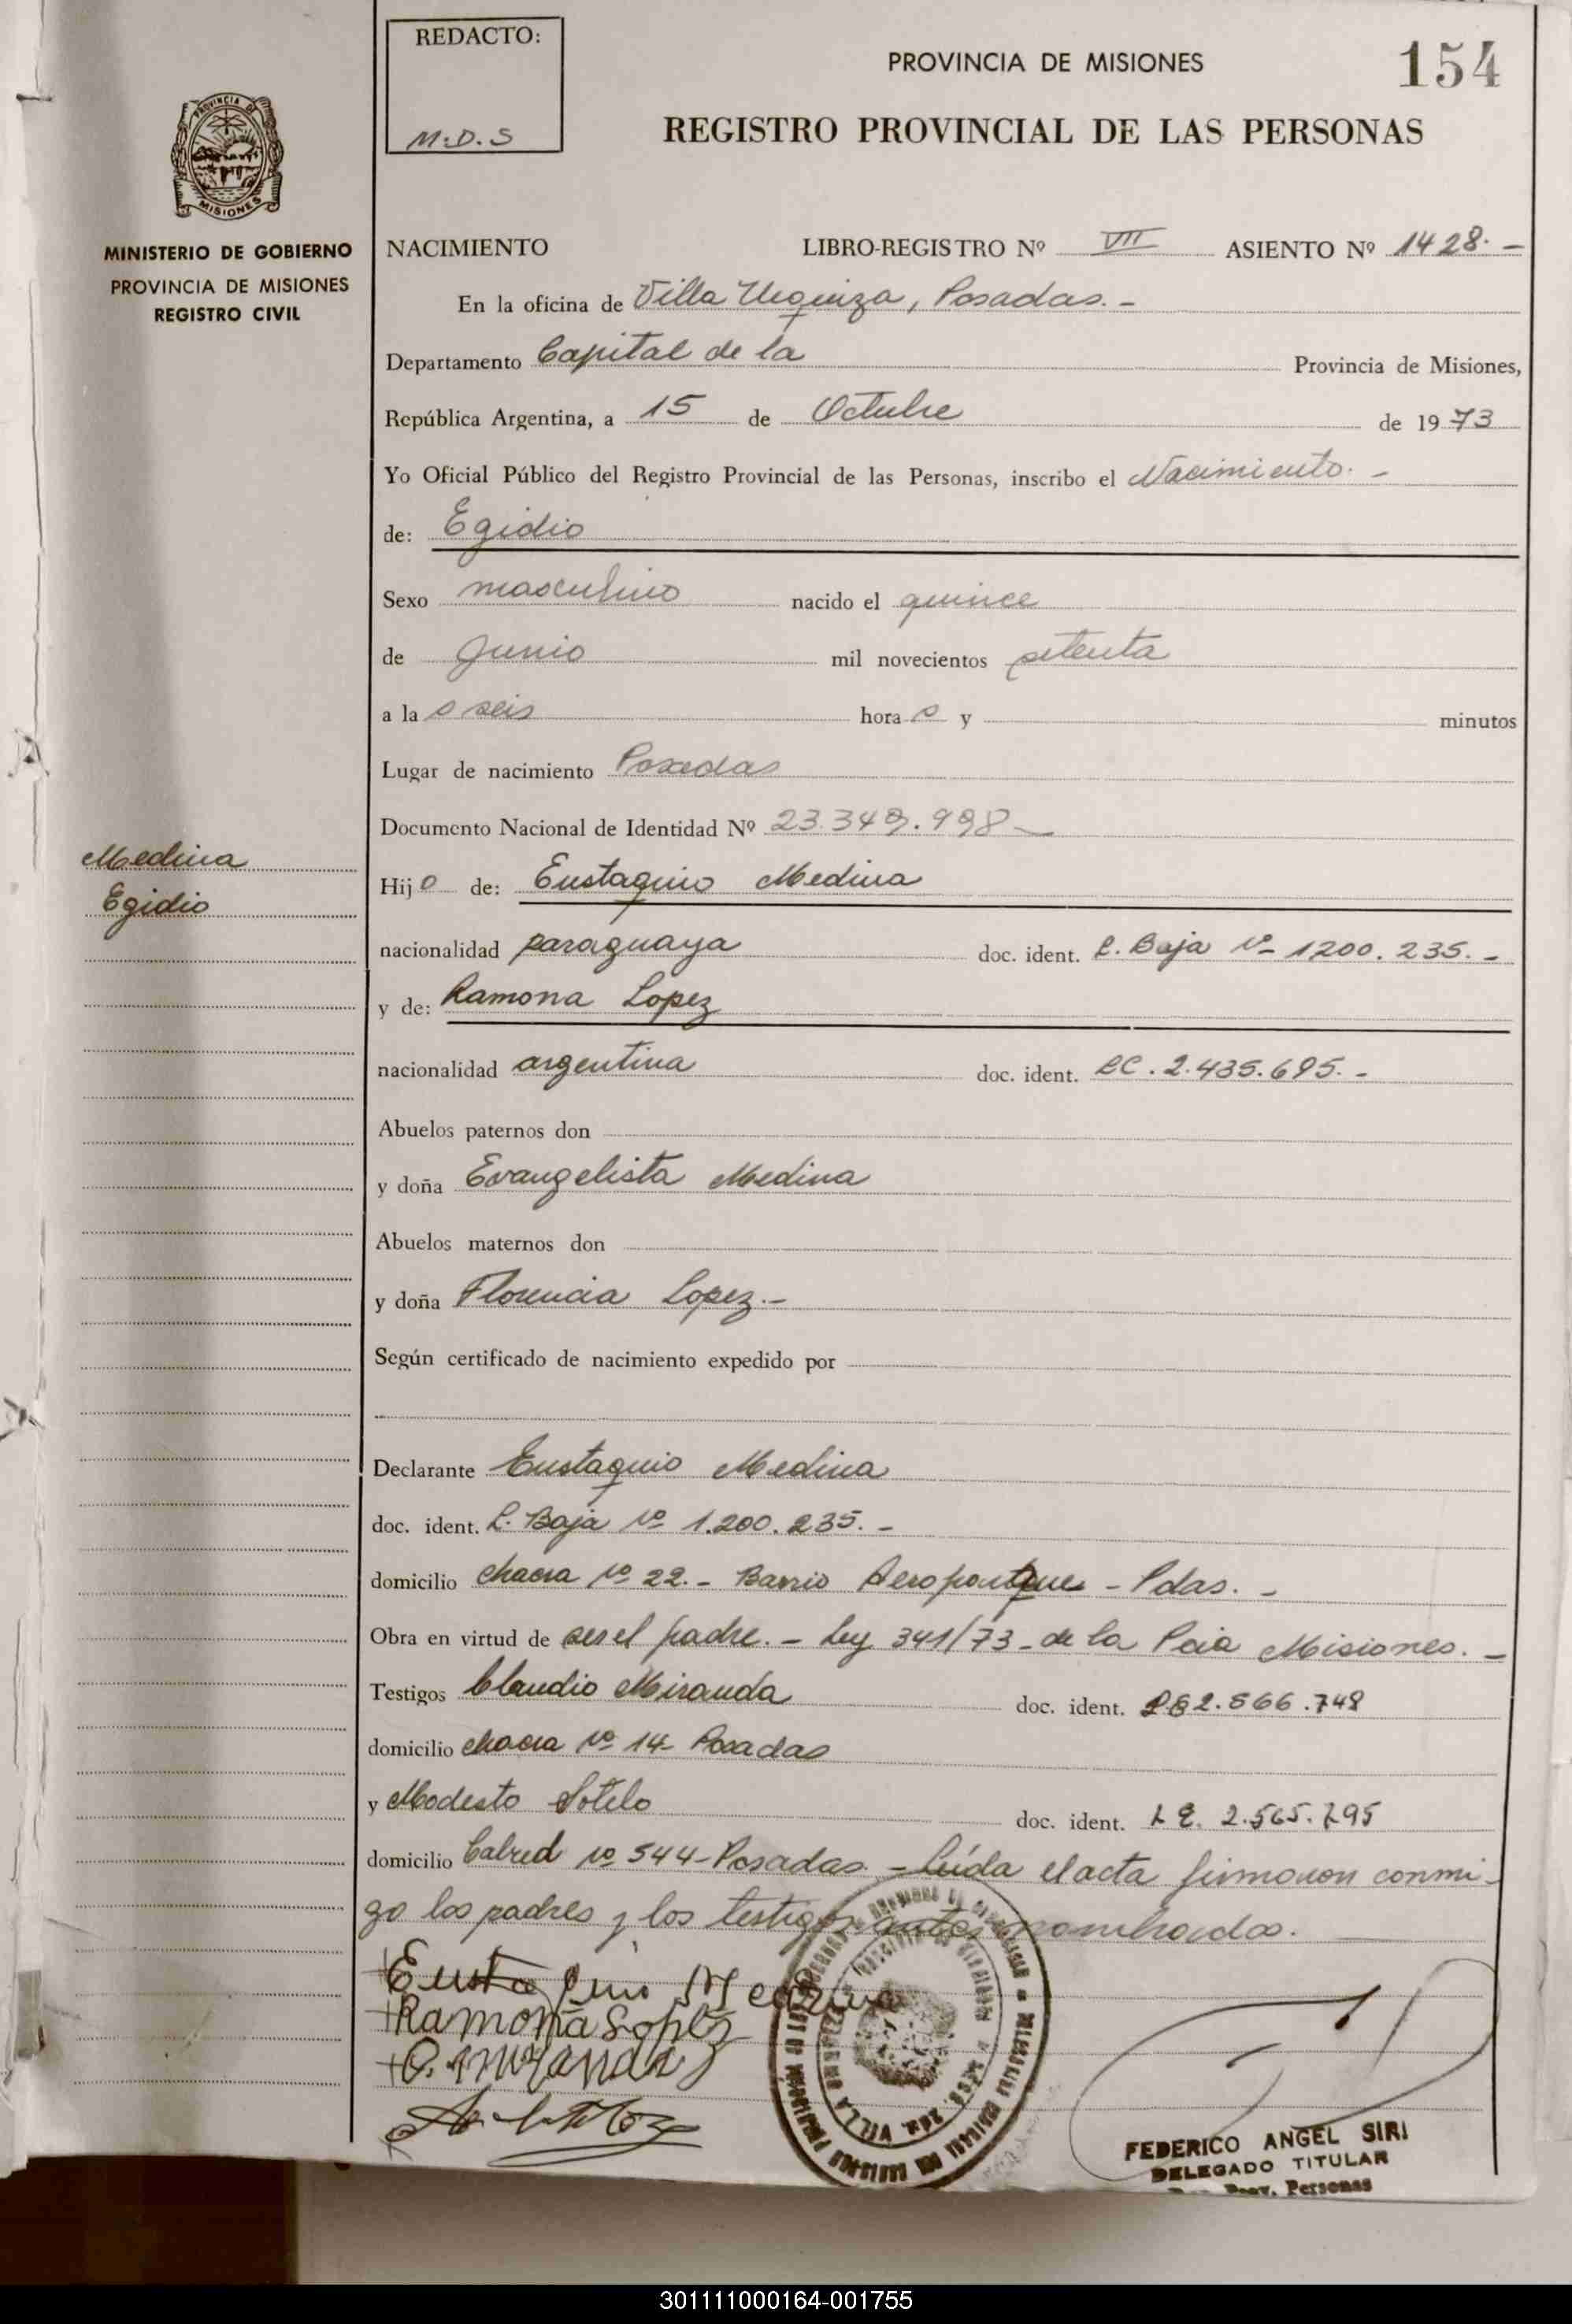 REDACTO:
M.D.S
PROVINCIA DE MISIONES
154
REGISTRO PROVINCIAL DE LAS PERSONAS
PROVINCIA DE
MISIONES
MINISTERIO DE GOBIERNO
PROVINCIA DE MISIONES
REGISTRO CIVIL
NACIMIENTO LIBRO-REGISTRO Nº VII ASIENTO Nº 1428.-
En la oficina de Villa Urquiza, Posadas.-
Departamento Capital de la Provincia de Misiones,
República Argentina, a 15 de Octubre de 1973
Yo Oficial Público del Registro Provincial de las Personas, inscribo el Nacimiento.-
de: Egidio
Sexo masculino nacido el quince
de Junio mil novecientos setenta
a la s seis hora s y minutos
Lugar de nacimiento Posadas
Documento Nacional de Identidad Nº 23.349.998-
Medina
Egidio
Hijo de: Eustaquio Medina
nacionalidad paraguaya doc. ident. L. Baja Nº 1200.235.-
y de: Ramona Lopez
nacionalidad argentina doc. ident. LC. 2.435.695.-
Abuelos paternos don
y doña Evangelista Medina
Abuelos maternos don
y doña Florencia Lopez.-
Según certificado de nacimiento expedido por
Declarante Eustaquio Medina
doc. ident. L. Baja Nº 1.200.235.-
domicilio chacra Nº 22.- Barrio - Pdas.-
Obra en virtud de ser el padre.- Ley 341/73- de la Pcia Misiones.-
Testigos Claudio Miranda doc. ident. 2.566.748
domicilio chacra Nº 14- Posadas
y Modesto Sotelo doc. ident. L E. 2.565.795
domicilio Cabred Nº 544-Posadas.- Leída el acta firmaron conmi-
go los padres y los testigos antes nombrados.
Eustaquio Medina
Ramona Lopez
C. Miranda
VILLA URQUIZA
FEDERICO ANGEL SIRI
DELEGADO TITULAR
Prov. Personas
301111000164-001755